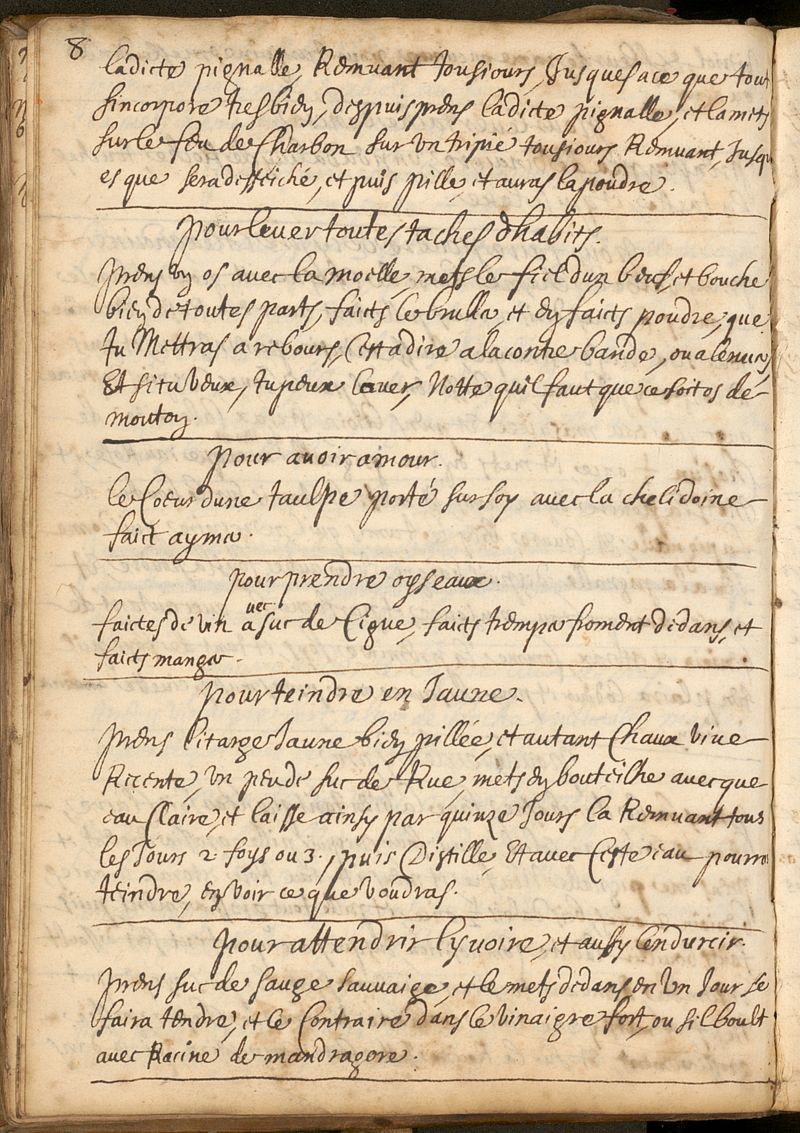 8
ladicte pignalle, Remuant tousiours, Jusques a ce que tout
sincorpore tresbien, despuis prens ladicte pignalle, et la mets
sur le feu de Charbon sur un tripié tousiours Remuant, Jusqu
es que sera desseiché, et puis pille, et auras la poudre.
pour lever toutes taches d'habits.
prens un os avec la moelle, mets le fiel dun beuf, et bouche
bien de toutes parts, faicts le brusler, et en faicts poudre, que
tu Mettras a rebours, Cest a dire a la contre bande, ou a lenvers,
Et si tu veux, tu peux laver, Notte quil faut que ce soit os de
mouton.
pour avoir amour.
le Coeur dune taulpe porté sur soy avec la chelidoine
faict aymer.
pour prendre oyseaux.
faictes de vin avec suc de Cigue, faicts tremper froment dedans, et
faicts manger.
pour teindre en Jaune.
prens litarge Jaune bien pillée, et autant Chaux vive
Recente, un peu de suc de Rue, mets en bouteilhe avecque
eau Claire, et laisse ainsy par quinze Jours la Remuant tous
les Jours 2 foys ou 3., puis Distille, Et avec Ceste eau pourra
teindre, en voir ce que voudras.
pour attendrir lyvoire, et aussy lendurcir.
prens suc de sauge sauvaige, et le mets dedans en un Jour se
faira tendre, et le Contraire dans le vinaigre fort, ou sil boult
avec Racine de mandragore.